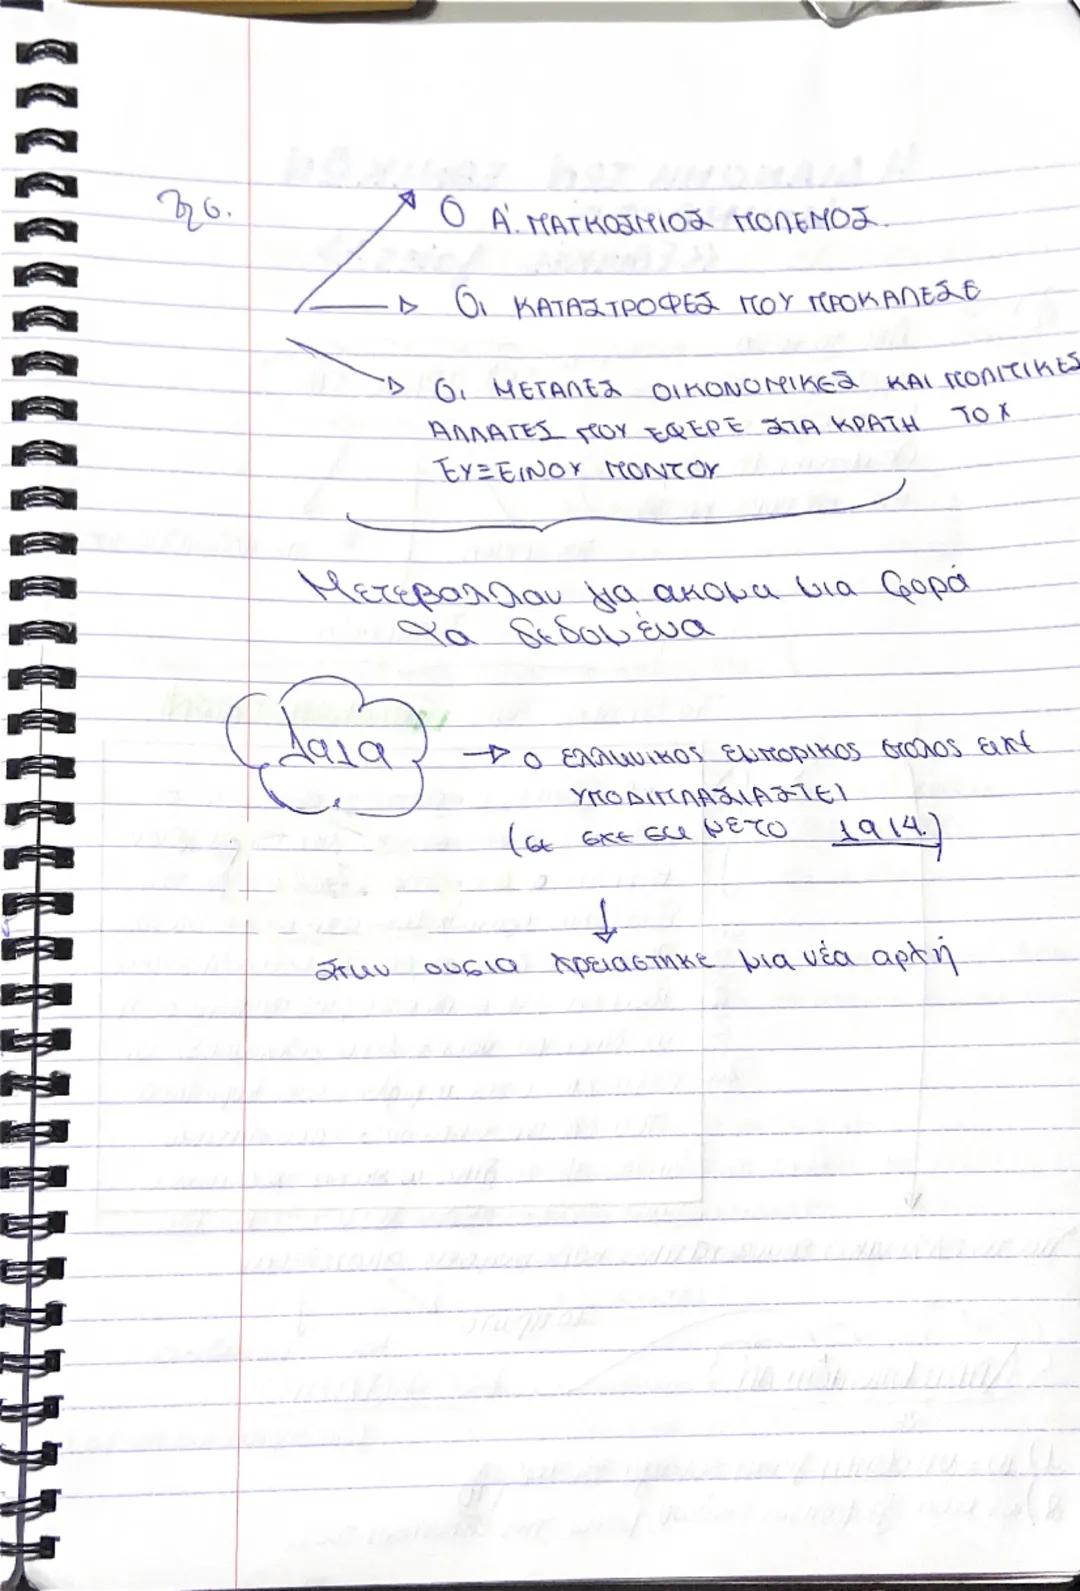 Ο Α'. ΠΑΓΚΟΣΜΙΟΣ ΠΟΛΕΜΟΣ.
ΟΙ ΚΑΤΑΣΤΡΟΦΕΣ ΠΟΥ ΠΡΟΚΑΛΕΣΕ
ΟΙ ΜΕΓΑΛΕΣ ΟΙΚΟΝΟΜΙΚΕΣ ΚΑΙ ΠΟΛΙΤΙΚΕΣ
ΑΛΛΑΓΕΣ ΠΟΥ ΕΦΕΡΕ ΣΤΑ ΚΡΑΤΗ ΤΟΥ
ΕΥΞΕΙΝΟΥ ΠΟΝΤΟΥ
Μετεβαλλαν για ακομα μια φορά
τα δεδομένα
1919 → ο ελληνικος εμπορικος στολος ειχε
ΥΠΟΔΙΠΛΑΣΙΑΣΤΕΙ
(σε σχεση με το 1914.)
↓
στην ουσια χρειαστηκε μια νέα αρχή